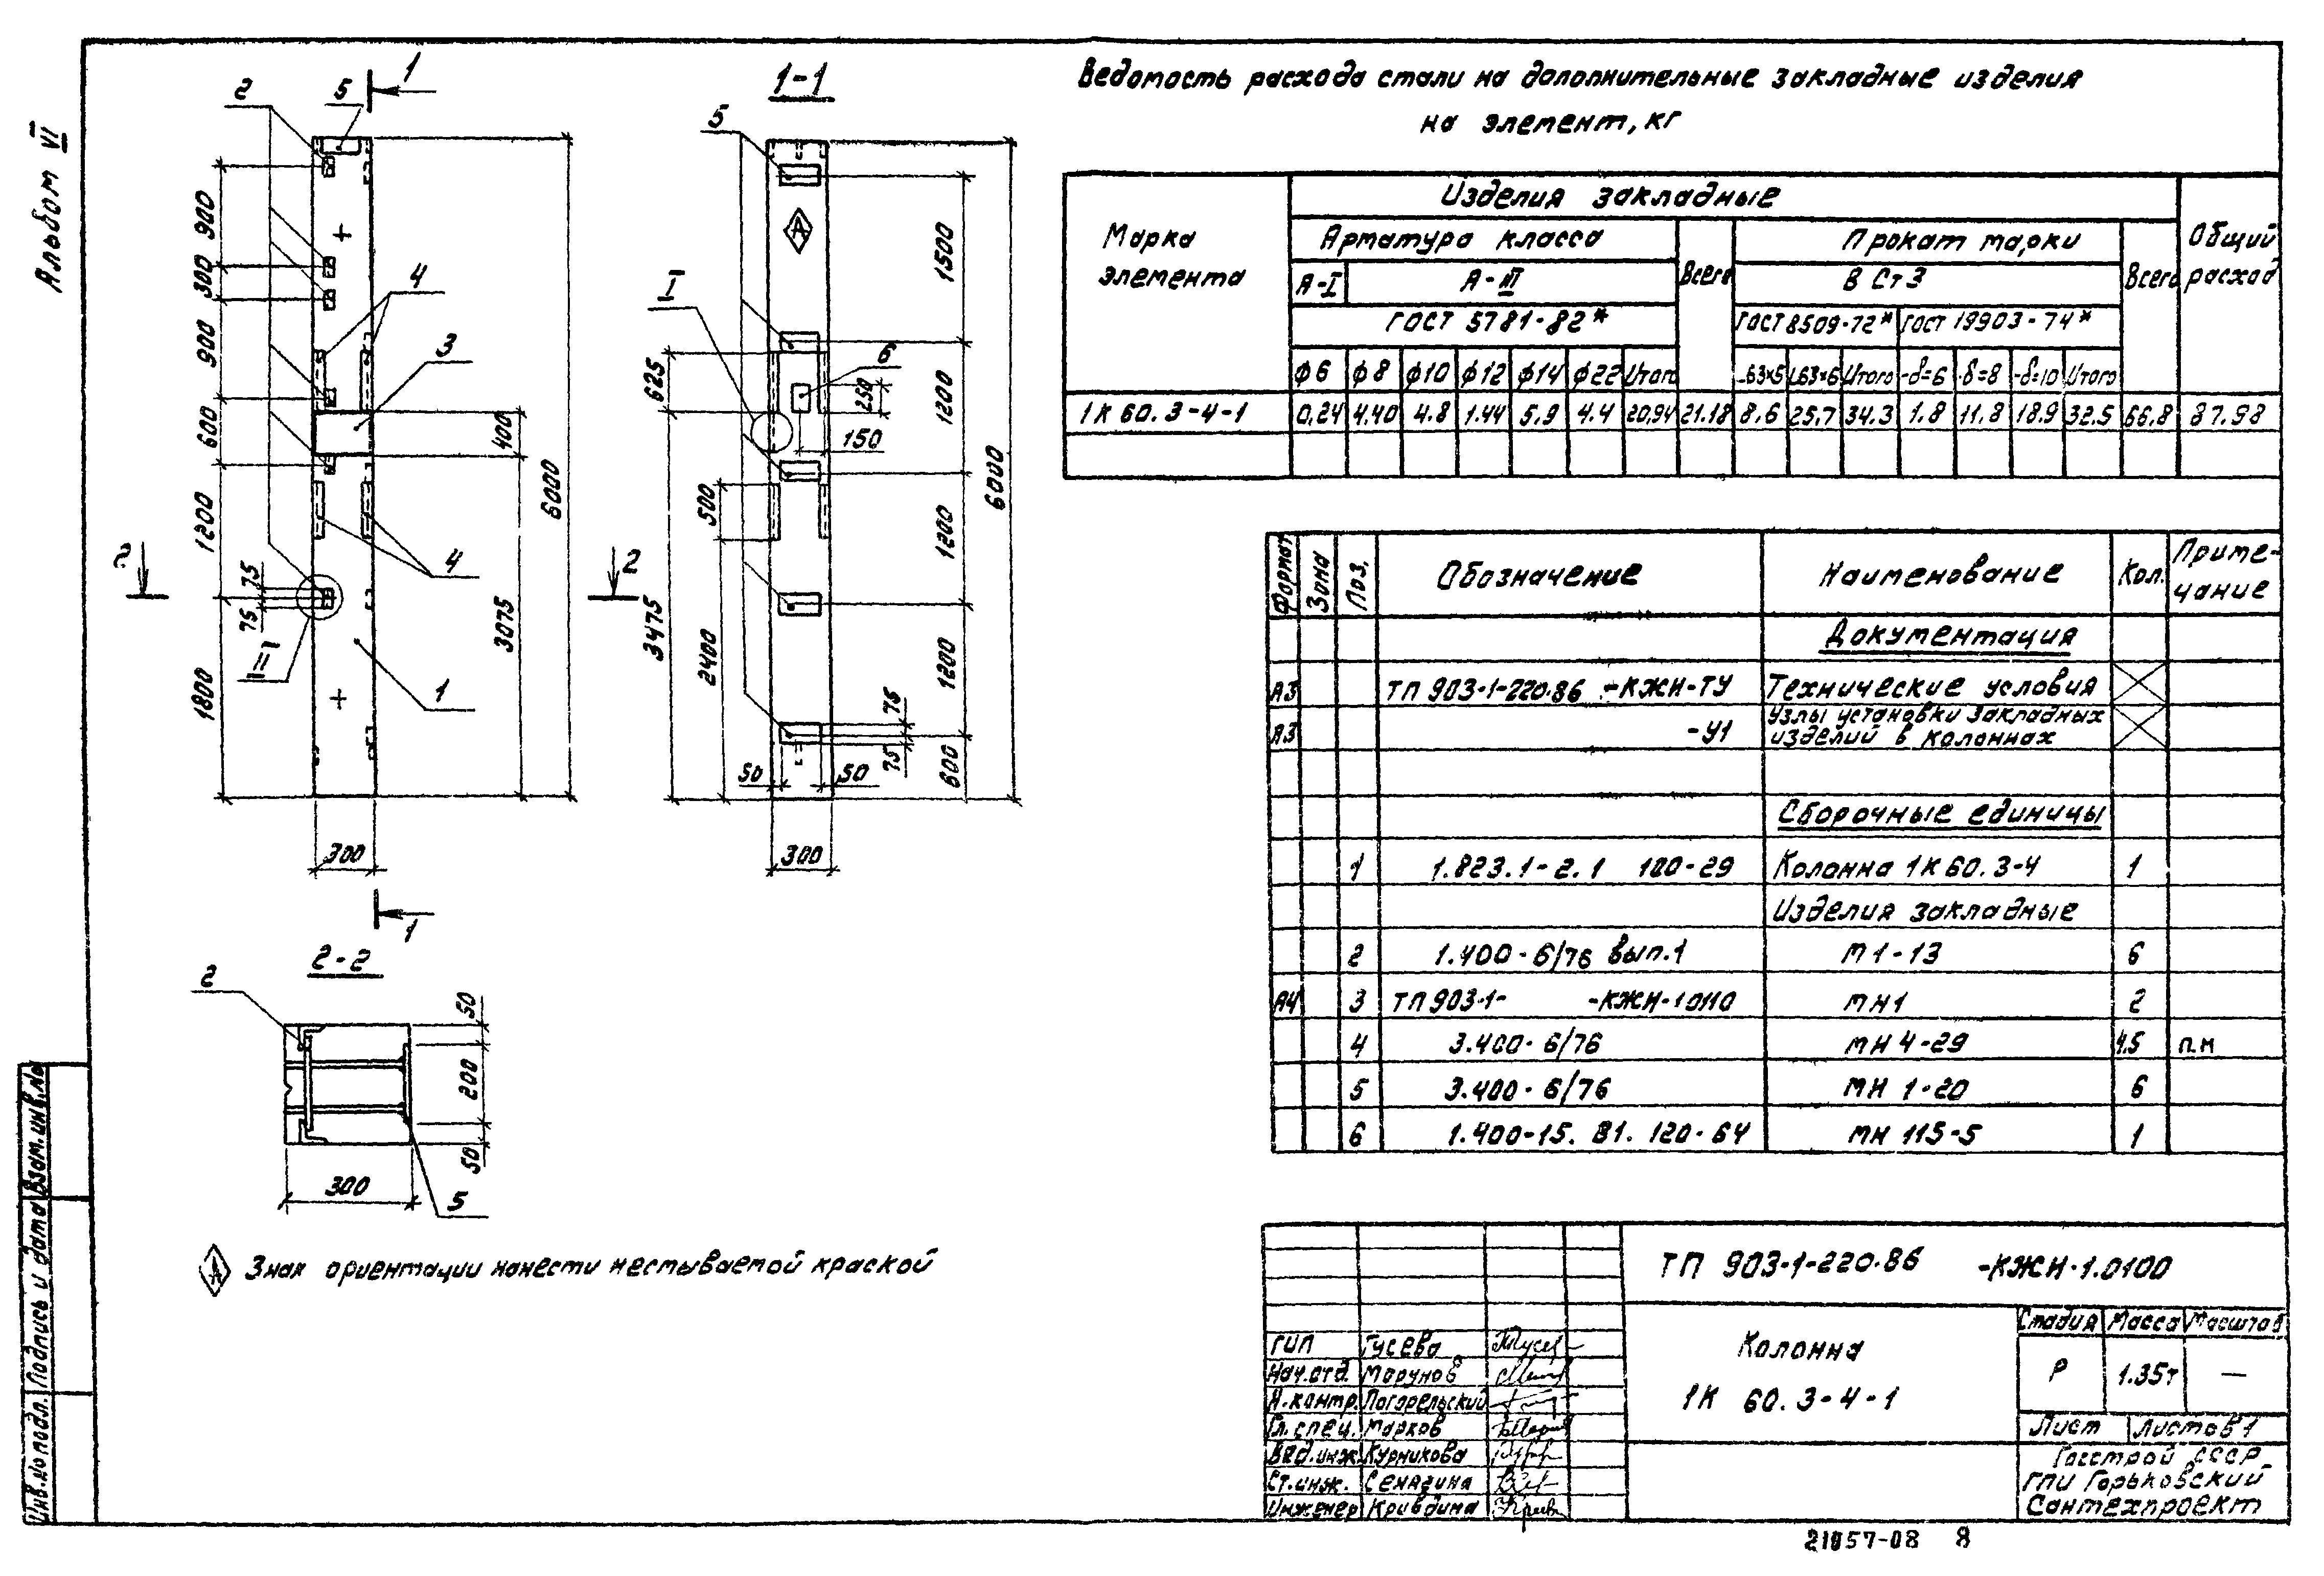 Альбом VI
1
2 5
900
300
900
600
1200
75
75
1800
4
3
400
6000
4
3075
2
II
1
300
1
1-1
5
А
I
625
6
250
150
500
3475
2400
2
1500
1200
1200
1200
600
6000
75
75
50 50
300
2-2
2
50
200
50
300
5
А Знак ориентации нанести несмываемой краской
Ведомость расхода стали на дополнительные закладные изделия
на элемент, кг
Марка элемента
Изделия закладные
Общий расход
Арматура класса
Всего
Прокат марки
Всего
А-I А-III
В Ст 3
ГОСТ 5781-82*
ГОСТ 8509-72* ГОСТ 19903-74*
ф6 ф8 ф10 ф12 ф14 ф22 Итого L63×5 L63×6 Итого -δ=6 -δ=8 -δ=10 Итого
1К 60.3-4-1 0,24 4,40 4.8 1.44 5,9 4.4 20,94 21.18 8,6 25,7 34.3 1.8 11,8 18.9 32.5 66,8 87.98
Формат Зона Поз. Обозначение Наименование Кол. Примечание
Документация
А3 ТП 903-1-220.86 -КЖИ-ТУ Технические условия
А3 -У1 Узлы установки закладных
изделий в колоннах
Сборочные единицы
1 1.823.1-2.1 100-29 Колонна 1К 60.3-4 1
Изделия закладные
2 1.400-6/76 вып.1 М1-13 6
А4 3 ТП 903-1- -КЖИ-10110 МН1 2
4 3.400-6/76 МН 4-29 4.5 п.м
5 3.400-6/76 МН 1-20 6
6 1.400-15. В1. 120-64 МН 115-5 1
ТП 903-1-220.86 -КЖИ-1.0100
Колонна
1К 60.3-4-1
Стадия Масса Масштаб
Р 1.35т —
Лист Листов 1
Госстрой СССР
ГПИ Горьковский
Сантехпроект
ГИП Гусева
Нач.отд. Марунов
Н.контр. Погорельский
Гл.спец. Марков
Вед.инж. Курникова
Ст.инж. Сенягина
Инженер Кривдина
Инв.№ подл. Подпись и дата Взам.инв.№
21057-08 8